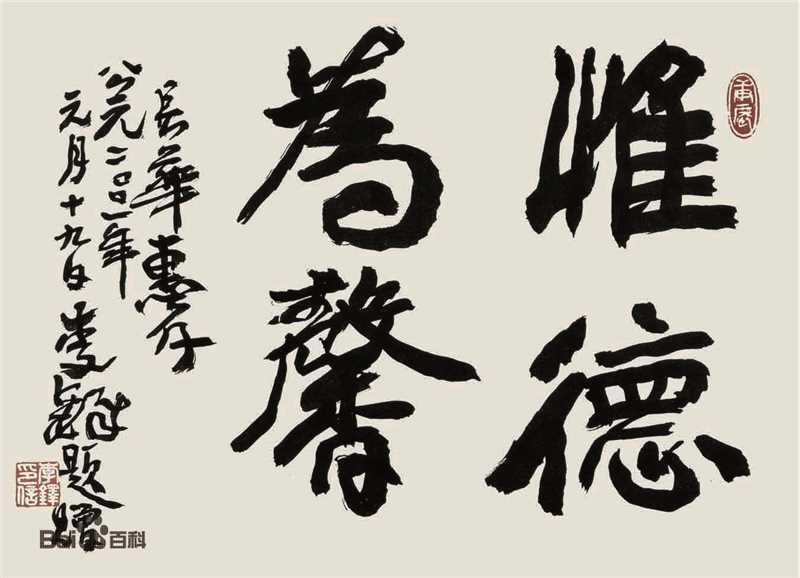 惟德
為馨
華惠存
公元二〇〇一年
元月十九日李鐸題贈
李鐸印信
Bai百科